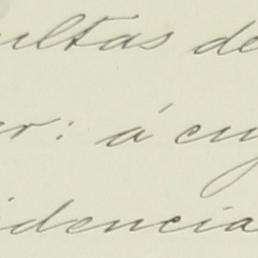 ultas de
or: á cuy
idencia